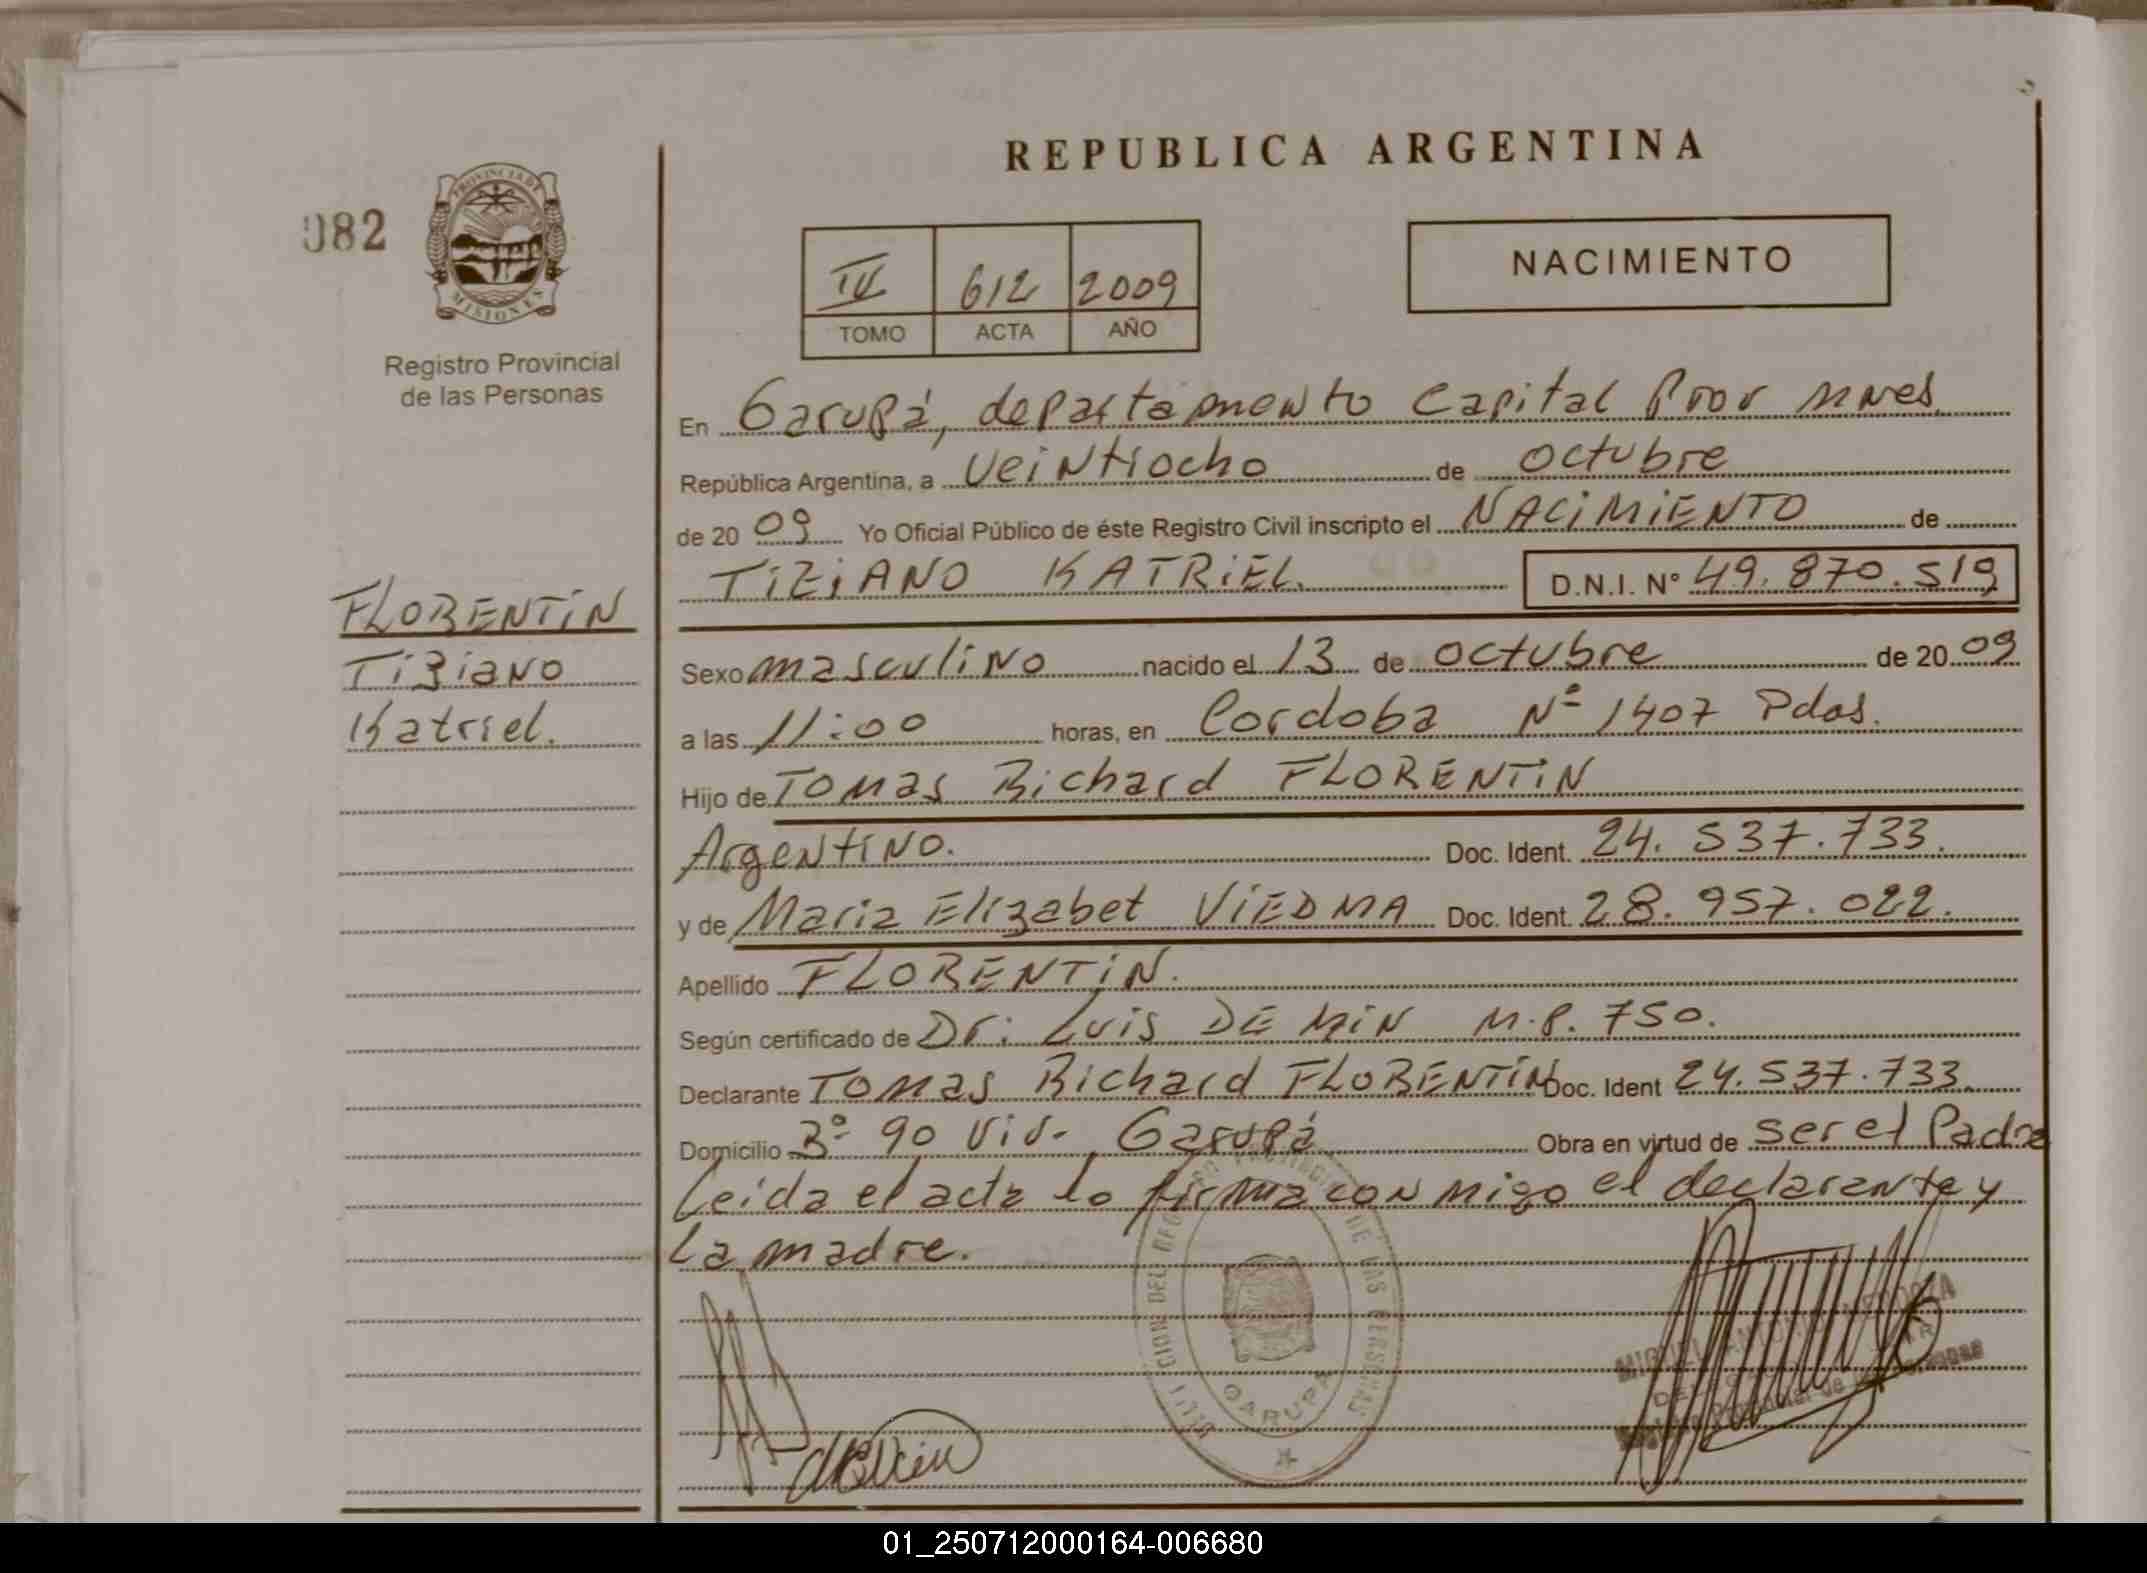 REPUBLICA ARGENTINA
082
PROVINCIA DE
MISIONES
Registro Provincial
de las Personas
IV 612 2009
TOMO ACTA AÑO
NACIMIENTO
En Garupá, departamento Capital Prov mnes
República Argentina, a veintiocho de octubre
de 20 09 Yo Oficial Público de éste Registro Civil inscripto el NACIMIENTO de
TIZIANO KATRIEL. D.N.I. N° 49.870.519
FLORENTIN
Tiziano
Katriel.
Sexo masculino nacido el 13 de octubre de 20 09
a las 11:00 horas, en Cordoba N° 1407 Pdas.
Hijo de Tomas Richard FLORENTIN
Argentino. Doc. Ident. 24.537.733.
y de Maria Elizabet VIEDMA Doc. Ident. 28.957.022.
Apellido FLORENTIN.
Según certificado de Dr: Luis DE MIN M.P. 750.
Declarante Tomas Richard FLORENTIN Doc. Ident 24.537.733
Domicilio 3° 90 viv. Garupá Obra en virtud de ser el Padre
Leida el acta lo firma con migo el declarante y
La madre.
DE LAS PERSONAS
GARUPA
MIGUEL ANTONIO
01_250712000164-006680